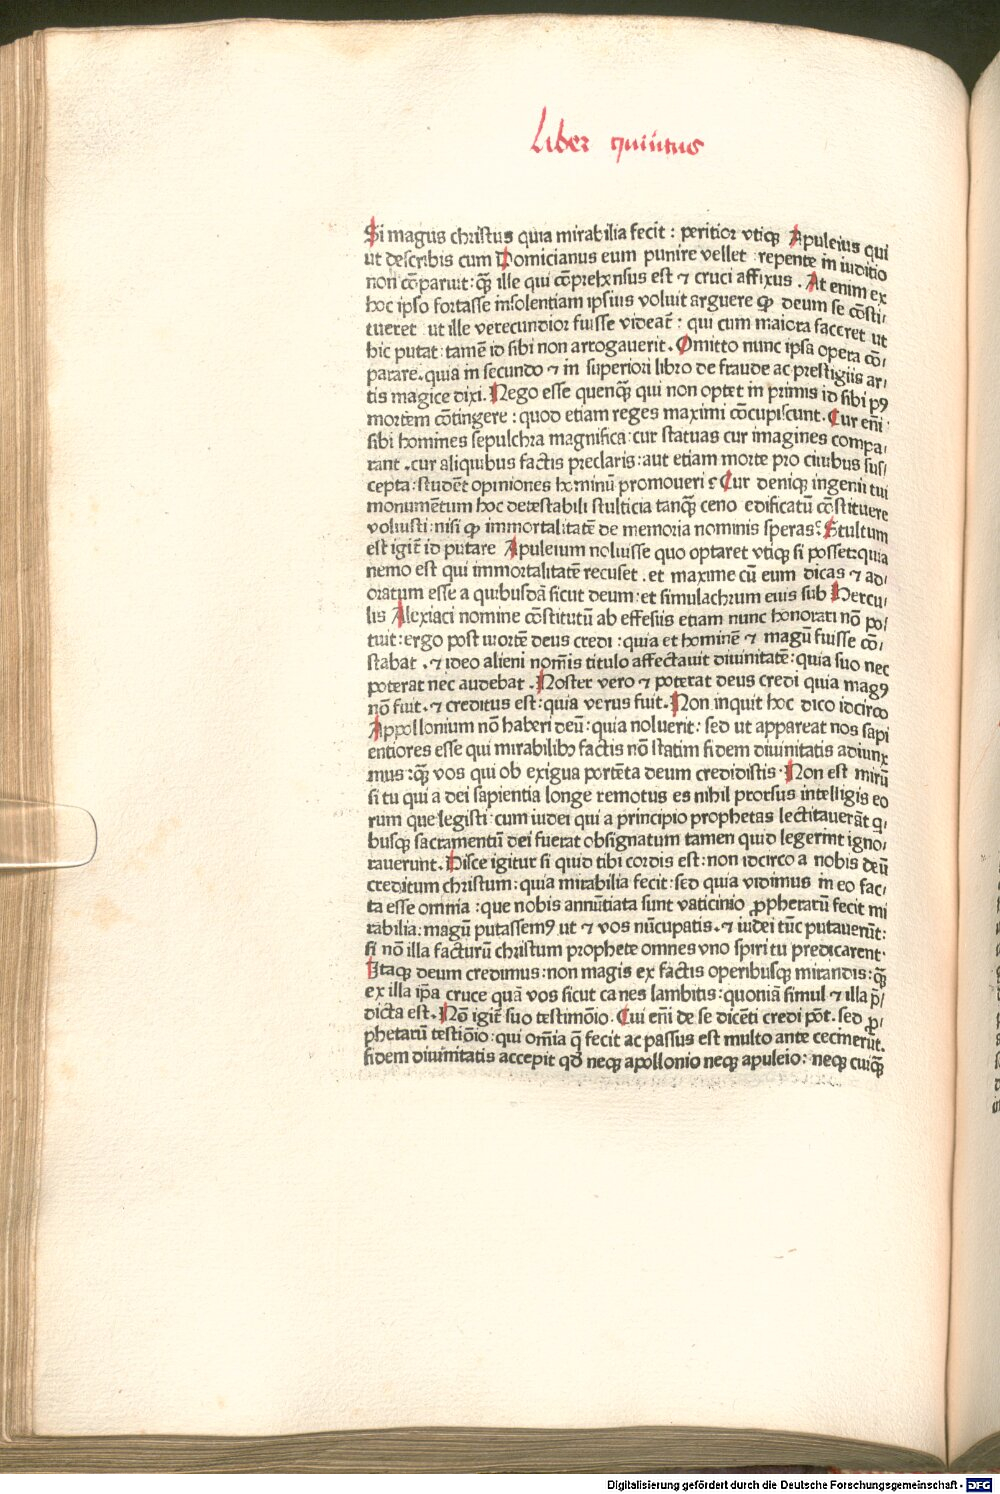 Liber quintus
Si magus christus quia mirabilia fecit : peritior vtiqꝫ Apuleius qui
ut describis cum Domicianus eum punire vellet repente in iuditio
non cōparuit: qꝫ̄ ille qui cōprehensus est ⁊ cruci affixus . At enim ex
hoc ipso fortasse insolentiam ipsius voluit arguere ꝙ deum se cōsti/
tueret ut ille verecundior fuisse videat̄ : qui cum maiora faceret ut
hic putat: tamē id sibi non arrogauerit. Omitto nunc ipsa opera cō/
parare. quia in secundo ⁊ in superiori libro de fraude ac prestigiis ar/
tis magice dixi. Nego esse quenqꝫ̄ qui non optet in primis id sibi pꝰ
mortem cōtingere : quod etiam reges maximi cōcupiscunt. Cur em̄
sibi homines sepulchra magnifica: cur statuas cur imagines compa/
rant .cur aliquibus factis preclaris: aut etiam morte pro ciuibus sus/
cepta: studēt opiniones hominū promoueri? Cur deniqꝫ ingenii tui
monumentum hoc detestabili stulticia tanqꝫ̄ ceno edificatū cōstituere
voluisti: nisi ꝙ immortalitatē de memoria nominis speras? Stultum
est igit̄ id putare Apuleium noluisse quo optaret vtiqꝫ si posset: quia
nemo est qui immortalitatē recuset .et maxime cū eum dicas ⁊ ad/
oratum esse a quibusdā sicut deum: et simulachrum eius sub Hercu/
lis Alexiaci nomine cōstitutū ab effesiis etiam nunc honorari nō po/
tuit: ergo post mortē deus credi : quia et hominē ⁊ magū fuisse cō/
stabat . ⁊ ideo alieni nom̄is titulo affectauit diuinitatē: quia suo nec
poterat nec audebat . Noster vero ⁊ poterat deus credi quia magꝰ
nō fuit. ⁊ creditus est: quia verus fuit. Non inquit hoc dico idcirco
Appollonium nō haberi deū : quia noluerit: sed ut appareat nos sapi
entiores esse qui mirabilibꝫ factis nō statim fidem diuinitatis adiunx
imus: qꝫ̄ vos qui ob exigua portēta deum credidistis. Non est mirū
si tu qui a dei sapientia longe remotus es nihil prorsus intelligis eo
rum que legisti: cum iudei qui a principio prophetas lectitauerāt q/
busqꝫ sacramentū dei fuerat obsignatum tamen quid legerint igno/
rauerunt. Disce igitur si quid tibi cordis est: non idcirco a nobis deū
creditum christum: quia mirabilia fecit: sed quia vidimus in eo fac/
ta esse omnia : que nobis annūtiata sunt vaticinio ꝓphetarū fecit mi
rabilia: magū putassemꝰ ut ⁊ vos nūcupatis. ⁊ iudei tūc putauerūt:
si nō illa facturū christum prophete omnes vno spiritu predicarent.
Itaqꝫ deum credimus: non magis ex factis operibusqꝫ mirandis: qꝫ̄
ex illa ip̄a cruce quā vos sicut canes lambitis: quoniā simul ⁊ illa p̄/
dicta est. Nō igit̄ suo testimōio. Cui em̄ de se dicēti credi pōt. sed ꝓ/
phetarū testiōio: qui om̄ia q̄ fecit ac passus est multo ante cecinerūt.
fidem diuinitatis accepit qd̄ neqꝫ apollonio neqꝫ apuleio: neqꝫ cuiqꝫ̄
Digitalisierung gefördert durch die Deutsche Forschungsgemeinschaft - DFG